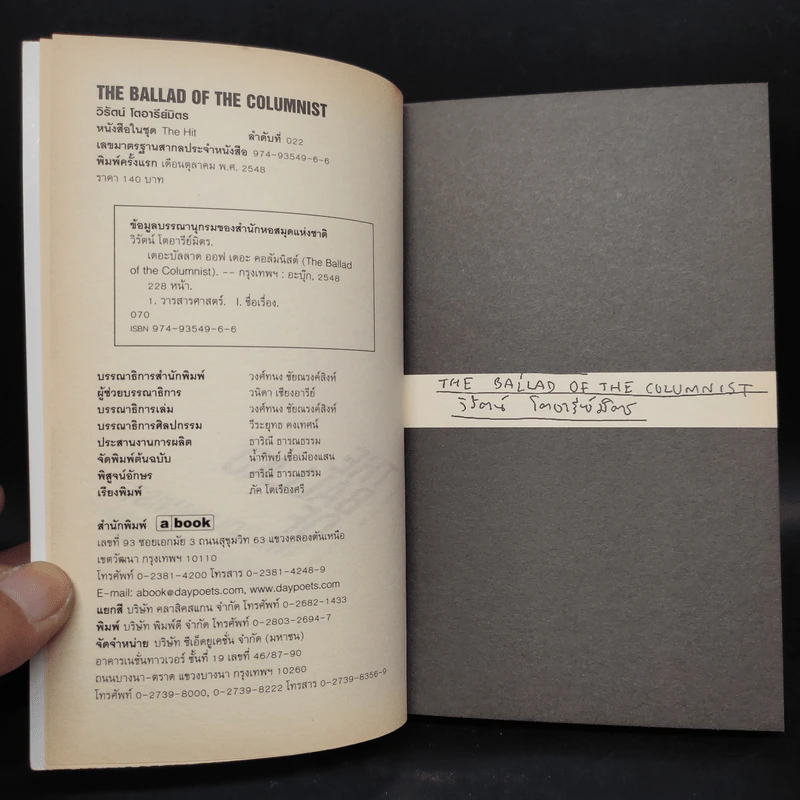 THE BALLAD OF THE COLUMNIST
วิรัตน์ โตอารีย์มิตร
หนังสือในชุด The Hit ลำดับที่ 022
เลขมาตรฐานสากลประจำหนังสือ 974-93549-6-6
พิมพ์ครั้งแรก เดือนตุลาคม พ.ศ. 2548
ราคา 140 บาท
ข้อมูลบรรณานุกรมของสำนักหอสมุดแห่งชาติ
วิรัตน์ โตอารีย์มิตร.
เดอะบัลลาด ออฟ เดอะ คอลัมนิสต์ (The Ballad
of the Columnist). -- กรุงเทพฯ : อะบุ๊ก, 2548
228 หน้า.
1. วารสารศาสตร์. I. ชื่อเรื่อง.
070
ISBN 974-93549-6-6
บรรณาธิการสำนักพิมพ์ วงศ์ทนง ชัยณรงค์สิงห์
ผู้ช่วยบรรณาธิการ วนิดา เชียงอารีย์
บรรณาธิการเล่ม วงศ์ทนง ชัยณรงค์สิงห์
บรรณาธิการศิลปกรรม วีระยุทธ คงเทศน์
ประสานงานการผลิต ธาริณี ธารณธรรม
จัดพิมพ์ต้นฉบับ น้ำทิพย์ เชื้อเมืองแสน
พิสูจน์อักษร ธาริณี ธารณธรรม
เรียงพิมพ์ ภัค โตเรืองศรี
สำนักพิมพ์ a book
เลขที่ 93 ซอยเอกมัย 3 ถนนสุขุมวิท 63 แขวงคลองตันเหนือ
เขตวัฒนา กรุงเทพฯ 10110
โทรศัพท์ 0-2381-4200 โทรสาร 0-2381-4248-9
E-mail: abook@daypoets.com, www.daypoets.com
แยกสี บริษัท คลาสิคสแกน จำกัด โทรศัพท์ 0-2682-1433
พิมพ์ บริษัท พิมพ์ดี จำกัด โทรศัพท์ 0-2803-2694-7
จัดจำหน่าย บริษัท ซีเอ็ดยูเคชั่น จำกัด (มหาชน)
อาคารเนชั่นทาวเวอร์ ชั้นที่ 19 เลขที่ 46/87-90
ถนนบางนา-ตราด แขวงบางนา กรุงเทพฯ 10260
โทรศัพท์ 0-2739-8000, 0-2739-8222 โทรสาร 0-2739-8356-9
THE BALLAD OF THE COLUMNIST
วิรัตน์ โตอารีย์มิตร